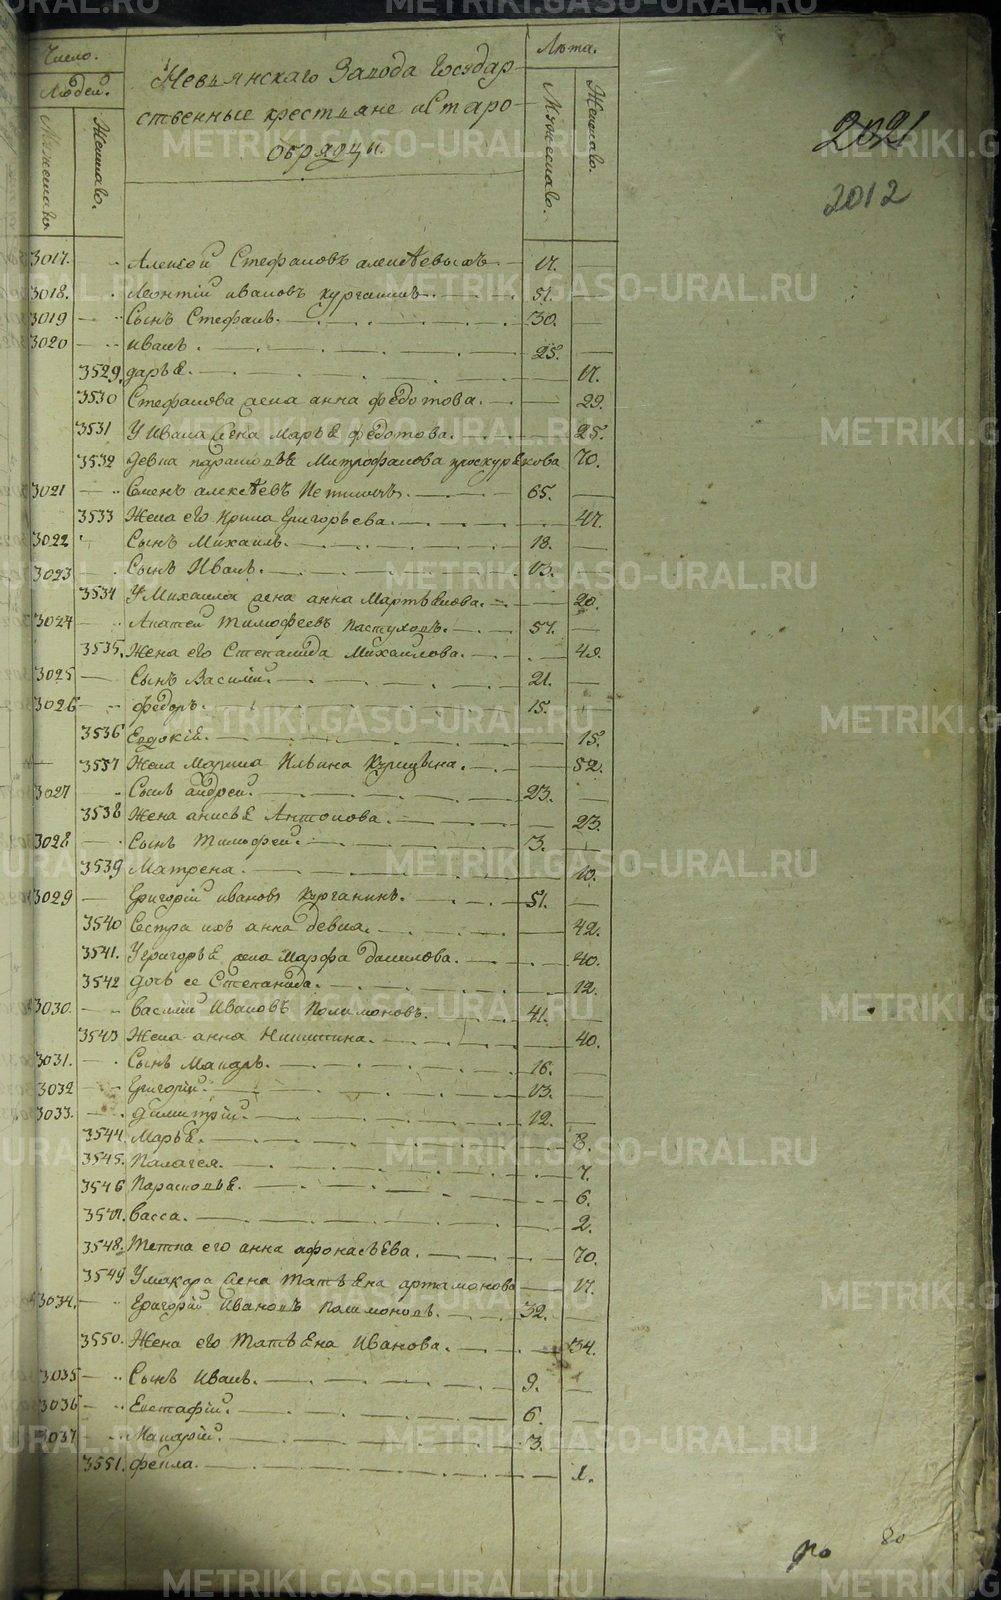 Число.
Людей.
Мужескаго.
Женскаго.
Невьянскаго Завода Государ-
ственные крестьяне и Старо-
обрядцы.
Лѣта.
Мужескаго.
Женскаго.
2021
2012
3017. Алексей Стефановъ 17.
3018. Леонтій ивановъ курганинъ. 51.
3019 Сынъ Стефанъ. 30.
3020 иванъ. 25.
3529. дарья. 17.
3530 Стефанова жена анна федотова. 29.
3531 У Ивана жена Марья федотова. 25.
3532 девка парасковья Митрофанова проскурякова 70.
3021 Семенъ алексѣевъ 65.
3533 Жена его Ирина Григорьева. 47.
3022 Сынъ Михаилъ. 18.
3023 Сынъ Иванъ. 13.
3534 У Михаила жена анна Мартьянова. 20.
3024 Ипатей Тимофеевъ Пастуховъ. 57.
3535. Жена его Степанида Михайлова.
3025 Сынъ Василій. 21.
3026 федоръ. 15.
3536 Евдокія. 15.
3537 Жена Марина Ильина Курицына. 52.
3027 Сынъ андрей. 23.
3538 Жена анисья Антонова. 23.
3028 Сынъ Тимофей. 3.
3539 Матрена. 10.
3029 Григорій ивановъ Курганинъ. 51.
3540 Сестра ихъ анна девка. 42.
3541. У григорья жена Марфа данилова. 40.
3542 дочь ее Степанида. 12.
3030. василій Ивановъ Полимоновъ. 41.
3543 Жена анна Никитина. 40.
3031. Сынъ Макаръ. 16.
3032 Григорій. 13.
3033. димитрій. 12.
3544. Марья. 8.
3545. Палагея. 7.
3546 Парасковья. 6.
3547. васса. 2.
3548. Тетка его анна афонасьева. 70.
3549 У макара жена Татьяна артамонова 17.
3034. Григорій Ивановъ Полимоновъ. 32.
3550. Жена его Татьяна Иванова. 34.
3035 Сынъ Иванъ. 9.
3036 Евстафій. 6.
3037 Макарій. 3.
3551. фекла. 1.
80
METRIKI.GASO-URAL.RU